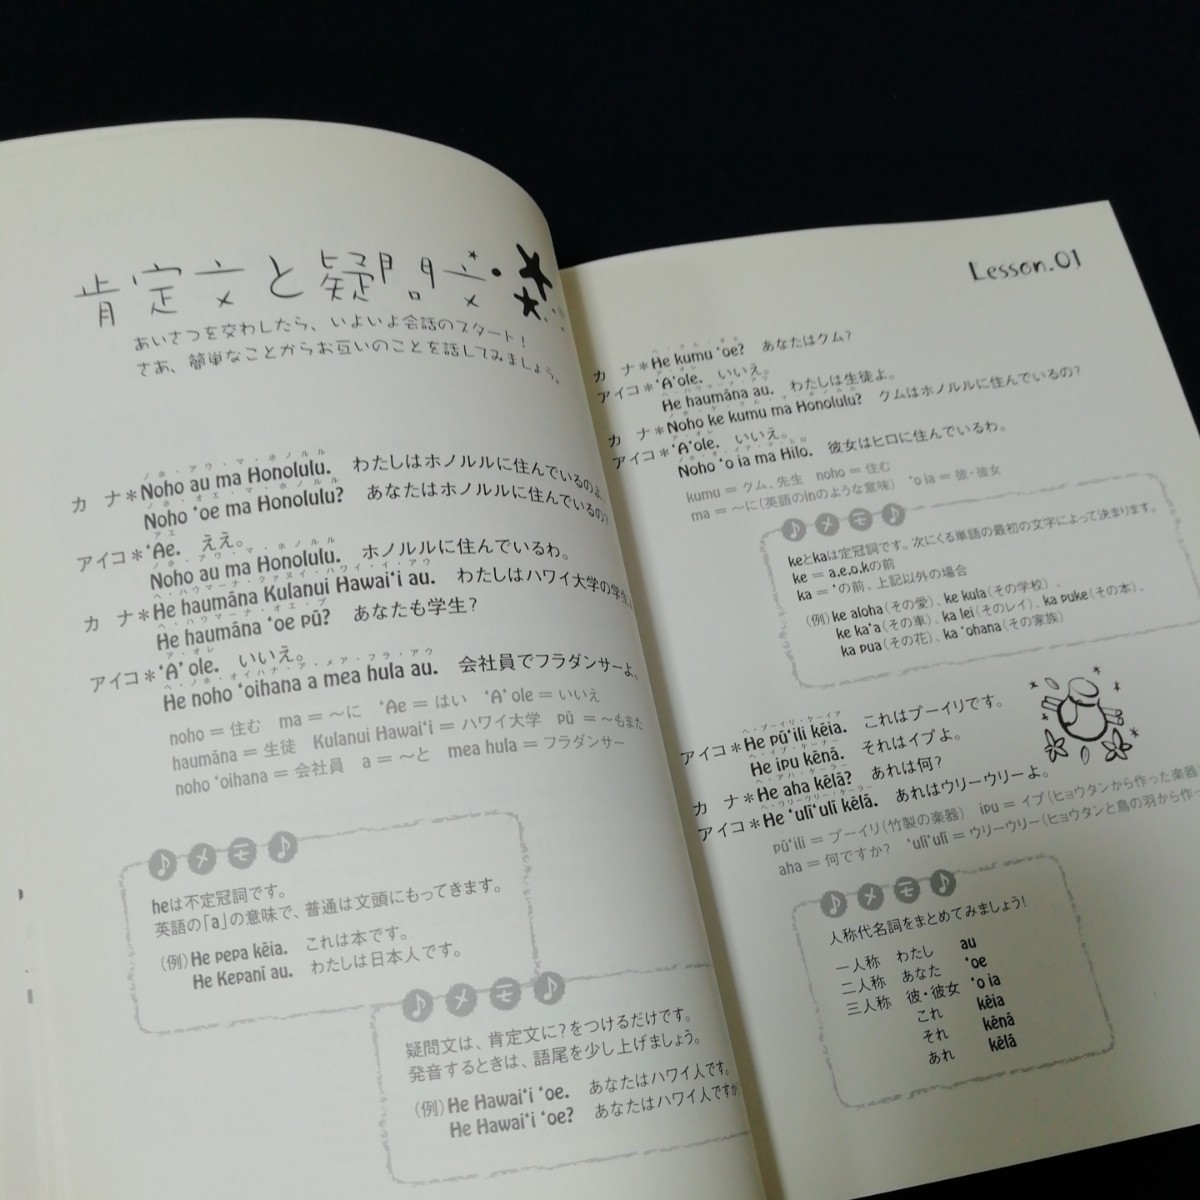 肯定文と疑問文
あいさつを交わしたら、いよいよ会話のスタート！
さあ、簡単なことからお互いのことを話してみましょう。
ノホ・アウ・マ・ホノルル
カ ナ＊Noho au ma Honolulu. わたしはホノルルに住んでいるのよ。
ノホ・オエ・マ・ホノルル
Noho ʻoe ma Honolulu? あなたはホノルルに住んでいるの?
アエ
アイコ＊ʻAe. ええ。
ノホ・アウ・マ・ホノルル
Noho au ma Honolulu. ホノルルに住んでいるわ。
ヘ・ハウマーナ・クラヌイ・ハワイ・イ・アウ
カ ナ＊He haumāna Kulanui Hawaiʻi au. わたしはハワイ大学の学生。
ヘ・ハウマーナ・オエ・プ
He haumāna ʻoe pū? あなたも学生？
ア・オレ
アイコ＊ʻAʻ ole. いいえ。
ヘ・ノホ・オイハナ・ア・メア・フラ・アウ
He noho ʻoihana a mea hula au. 会社員でフラダンサーよ。
noho＝住む ma＝〜に ʻAe＝はい ʻAʻ ole＝いいえ
haumāna＝生徒 Kulanui Hawaiʻi＝ハワイ大学 pū＝〜もまた
noho ʻoihana＝会社員 a＝〜と mea hula＝フラダンサー
♪メモ♪
heは不定冠詞です。
英語の「a」の意味で、普通は文頭にもってきます。
（例）He pepa kēia. これは本です。
He Kepanī au. わたしは日本人です。
♪メモ♪
疑問文は、肯定文に?をつけるだけです。
発音するときは、語尾を少し上げましょう。
（例）He Hawaiʻi ʻoe. あなたはハワイ人です。
He Hawaiʻi ʻoe? あなたはハワイ人ですか
Lesson.01
ヘ・クム・オエ
カ ナ＊He kumu ʻoe? あなたはクム？
ア・オレ
アイコ＊ʻAʻole. いいえ。
ヘ・ハウマーナ・アウ
He haumāna au. わたしは生徒よ。
ノホ・ケ・クム・マ・ホノルル
カ ナ＊Noho ke kumu ma Honolulu? クムはホノルルに住んでいるの？
ア・オレ
アイコ＊ʻAʻole. いいえ。
ノホ・オ・イア・マ・ヒロ
Noho ʻo ia ma Hilo. 彼女はヒロに住んでいるわ。
kumu＝クム、先生 noho＝住む
ma＝〜に（英語のinのような意味） ʻo ia＝彼・彼女
♪メモ♪
keとkaは定冠詞です。次にくる単語の最初の文字によって決まります。
ke＝a,e,o,kの前
ka＝ʻの前、上記以外の場合
（例）ke aloha（その愛）、ke kula（その学校）、
ke kaʻa（その車）、ka lei（そのレイ）、ka puke（その本）、
ka pua（その花）、ka ʻohana（その家族）
ヘ・プーイリ・ケーイア
アイコ＊He pūʻili kēia. これはプーイリです。
ヘ・イプ・ケーナー
He ipu kēnā. それはイプよ。
ヘ・アハ・ケーラー
カ ナ＊He aha kēlā? あれは何？
ヘ・ウリーウリー・ケーラー
アイコ＊He ʻulīʻulī kēlā. あれはウリーウリーよ。
pūʻili＝プーイリ（竹製の楽器） ipu＝イプ（ヒョウタンから作った楽器）
aha＝何ですか？ ʻulīʻulī＝ウリーウリー（ヒョウタンと鳥の羽から作っ
♪メモ♪
人称代名詞をまとめてみましょう！
一人称 わたし au
二人称 あなた ʻoe
三人称 彼・彼女 ʻo ia
これ kēia
それ kēnā
あれ kēlā